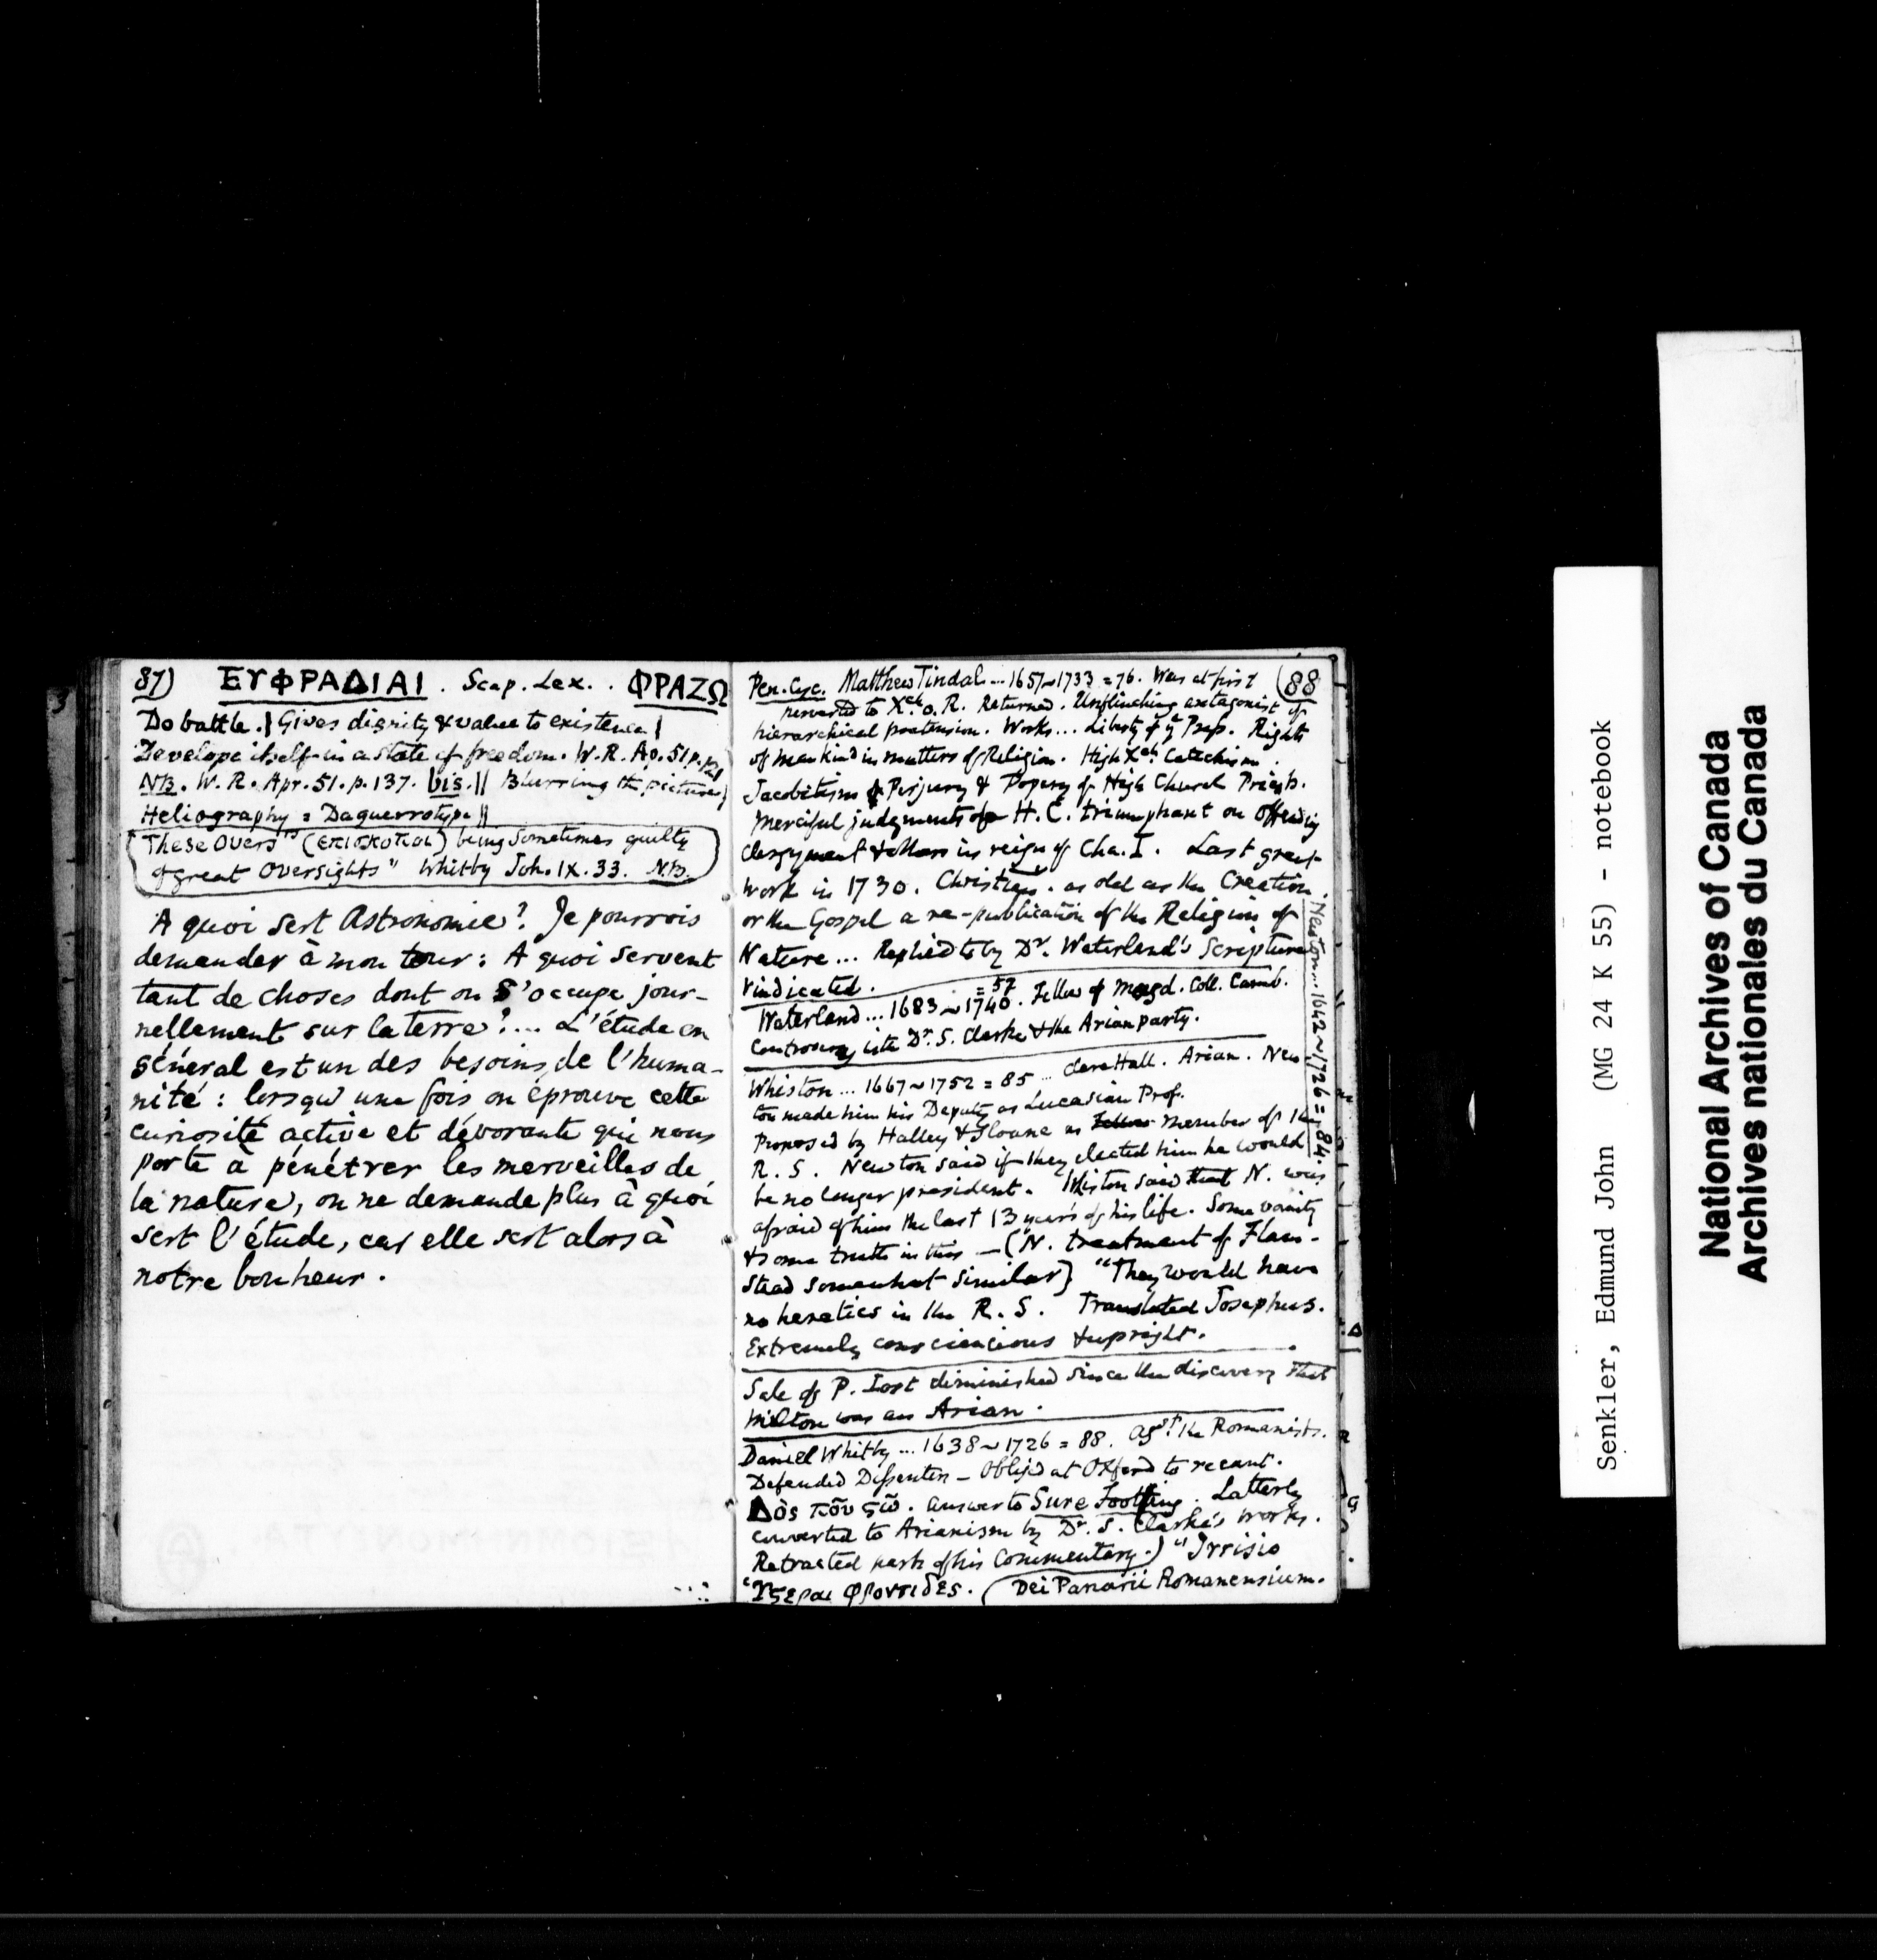 87) ΕΥΦΡΑΔΙΑΙ. Scap. Lex. . ΦΡΑΖΩ
Do battle. | Gives dignity & value to existence |
Develope itself in a state of freedom. W.R. Ap. 51 p.
NB. W.R. Apr. 51. p. 137. bis. || Blurring the picture |
Heliography = Daguerrotype ||
"These Overs" (επισκοποι) being Sometimes guilty
of great Oversights" Whitby Joh. IX. 33. N.B.
A quoi sert Astronomie? Je pourrois
demander à mon tour: A quoi servent
tant de choses dont on s'occupe jour-
nellement sur la terre?... L'étude en
général est un des besoins de l'huma-
nité: lorsqu'une fois on éprouve cette
curiosité active et dévorante qui nous
porte à pénétrer les merveilles de
la nature, on ne demande plus à quoi
sert l'étude, car elle sert alors à
notre bonheur.
Pen. Cyc. Matthew Tindal... 1657~1733 = 76. Was at first (88
perverted to Xch. o. R. Returned. Unflinching antagonist of
hierarchical pretension. Works... Liberty of ye Press. Rights
of mankind in matters of Religion. High Xch Catechism.
Jacobitism & Perjury & Popery of High Church Priests.
Merciful judgments of H. C. triumphant on offending
clergymen & others in reign of Cha. I. Last great
work in 1730. Christian. as old as the Creation.
or the Gospel a re-publication of the Religion of
Nature... Replied to by Dr. Waterland's Scripture
Vindicated.
Waterland... 1683~1740 = 57. Fellow of Magd. Coll. Camb.
Controversy with Dr. S. Clarke & the Arian party.
Whiston... 1667~1752 = 85... Clare Hall. Arian. New
ton made him his Deputy as Lucasian Prof.
Proposed by Halley & Sloane as Fellow member of the
R. S. Newton said if they elected him he would
be no longer president. Whiston said that N. was
afraid of him the last 13 years of his life. Some vanity
& some truth in this — (N. treatment of Flam-
stead somewhat similar) "They would have
no heretics in the R. S. Translated Josephus.
Extremely consciencious & upright.
Newton... 1642~1726 = 84
Sale of P. Lost diminished since the discovery that
Milton was an Arian.
Daniell Whitby... 1638~1726 = 88. Agst. the Romanists.
Defended Dissenters – Oblig'd at Oxford to recant.
Δὸς ποῦ ςῶ. Answer to Sure Footing. Latterly
converted to Arianism by Dr. S. Clarke's works.
Retracted parts of his Commentary.) "Irrisio
"Υςεραι φροντιδες. (Dei Panarii Romanensium.
Senkler, Edmund John (MG 24 K 55) - notebook
National Archives of Canada
Archives nationales du Canada